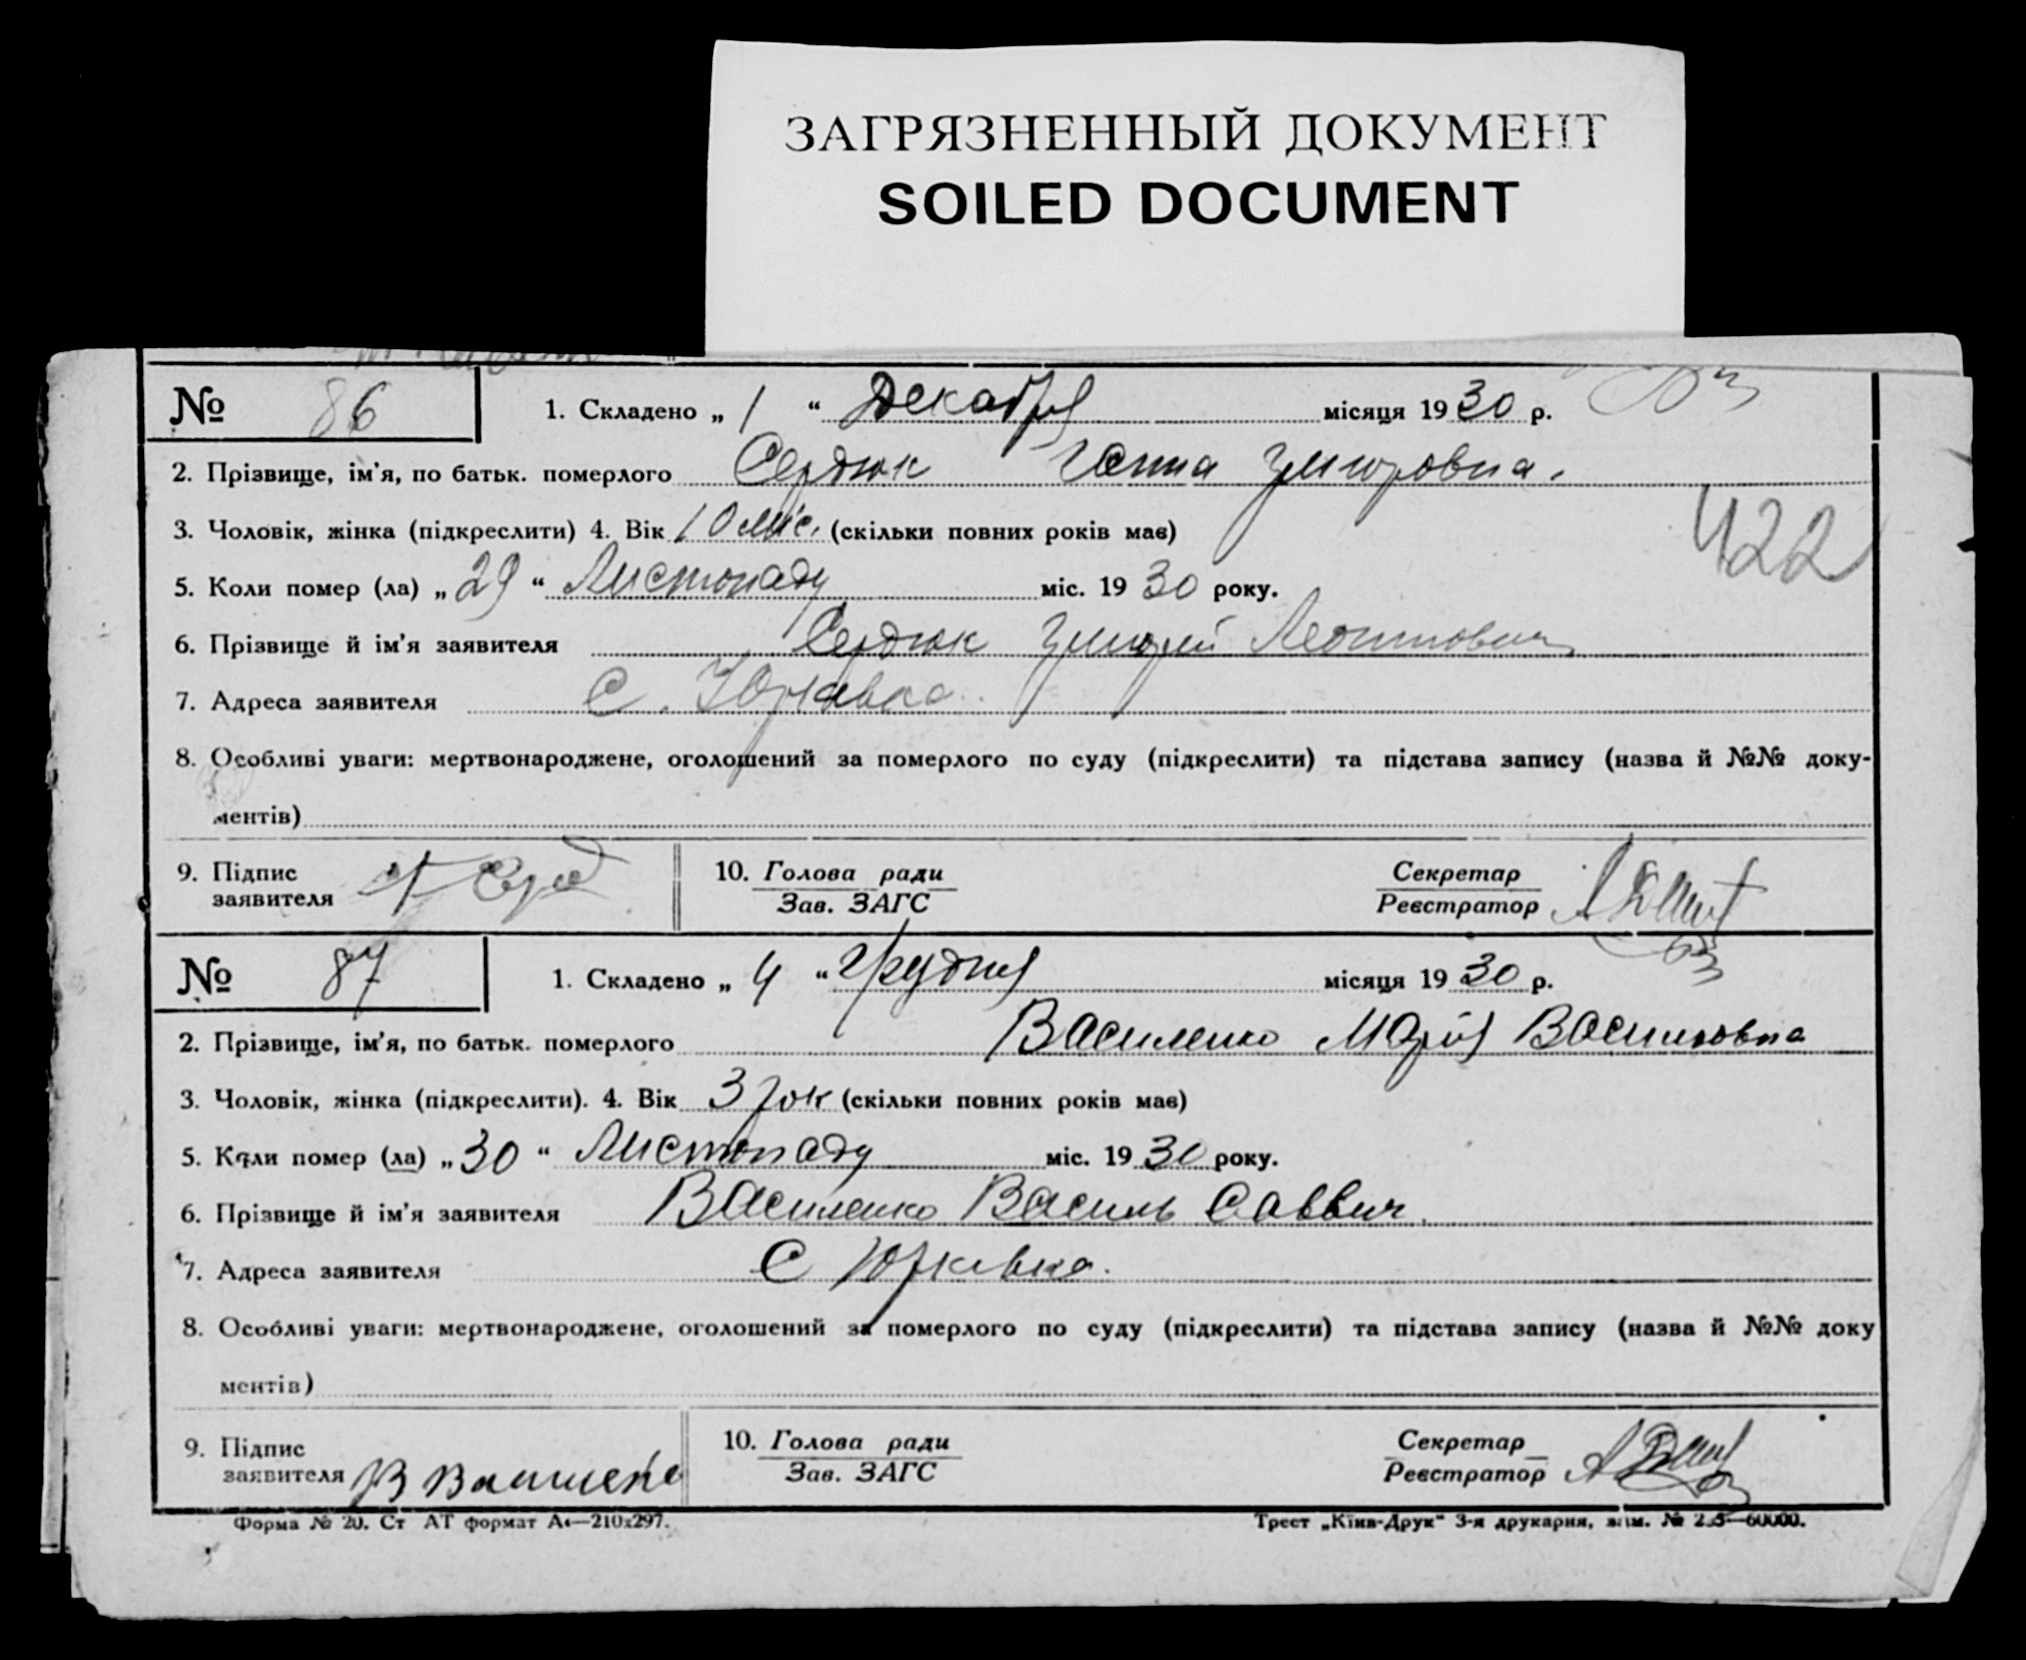 ЗАГРЯЗНЕННЫЙ ДОКУМЕНТ
SOILED DOCUMENT
№ 86 1. Складено „ 1 “ Декабря місяця 19 30 р.
2. Прізвище, ім'я, по батьк. померлого Сердюк Ганна
3. Чоловік, жінка (підкреслити) 4. Вік 10 міс. (скільки повних років має)
422
5. Коли помер (ла) „ 29 “ Листопаду міс. 19 30 року.
6. Прізвище й ім'я заявителя Сердюк
7. Адреса заявителя С. Юрківка
8. Особливі уваги: мертвонароджене, оголошений за померлого по суду (підкреслити) та підстава запису (назва й №№ доку-
ментів)
9. Підпис 10. Голова ради Секретар
заявителя Зав. ЗАГС Реєстратор
№ 87 1. Складено „ 4 “ Грудня місяця 19 30 р.
2. Прізвище, ім'я, по батьк. померлого Василенко Марія Васильовна
3. Чоловік, жінка (підкреслити). 4. Вік 3 рок (скільки повних років має)
5. Коли помер (ла) „ 30 “ Листопаду міс. 19 30 року.
6. Прізвище й ім'я заявителя Василенко Василь Саввич.
7. Адреса заявителя С Юрківка.
8. Особливі уваги: мертвонароджене, оголошений за померлого по суду (підкреслити) та підстава запису (назва й №№ доку
ментів)
9. Підпис 10. Голова ради Секретар
заявителя Зав. ЗАГС Реєстратор
Форма № 20. Ст АТ формат А4—210x297.
Трест „Київ-Друк“ 3-я друкарня, зам. № 60000.